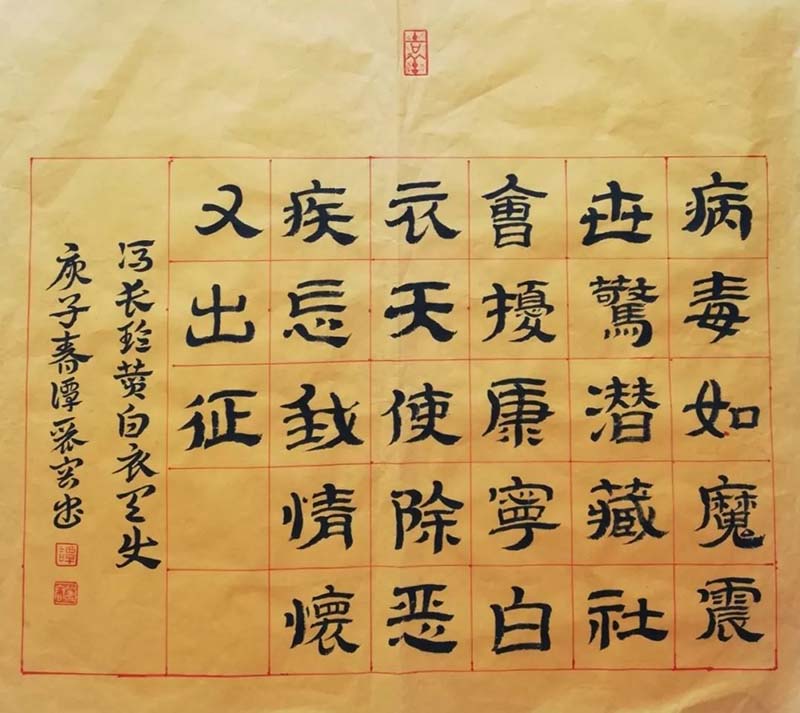 病毒如魔震
世驚潜藏社
會擾康寧白
衣天使除恶
疾忘我情懷
又出征
冯长珍白衣天使
庚子春谭书